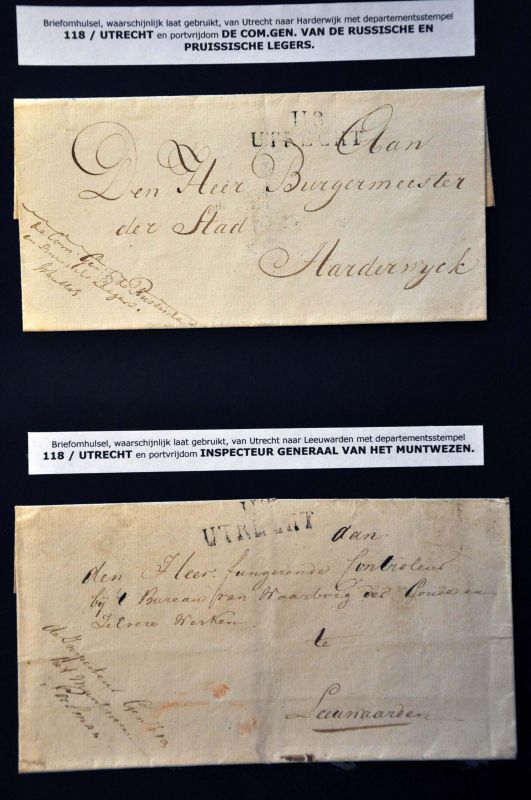 Briefomhulsel, waarschijnlijk laat gebruikt, van Utrecht naar Harderwijk met departementsstempel
118 / UTRECHT en portvrijdom DE COM.GEN. VAN DE RUSSISCHE EN
PRUISSISCHE LEGERS.
118
UTRECHT
Aan
Den Heer Burgermeester
der Stad
Harderwyck
de Com. Gen. Russische
en Legers.
Briefomhulsel, waarschijnlijk laat gebruikt, van Utrecht naar Leeuwarden met departementsstempel
118 / UTRECHT en portvrijdom INSPECTEUR GENERAAL VAN HET MUNTWEZEN.
UTRECHT
aan
den Heer fungerende Controleur
bij t Bureau van Waarborg der Goude en
Zilvere Werken
te
Leeuwaarden
de Inspecteur